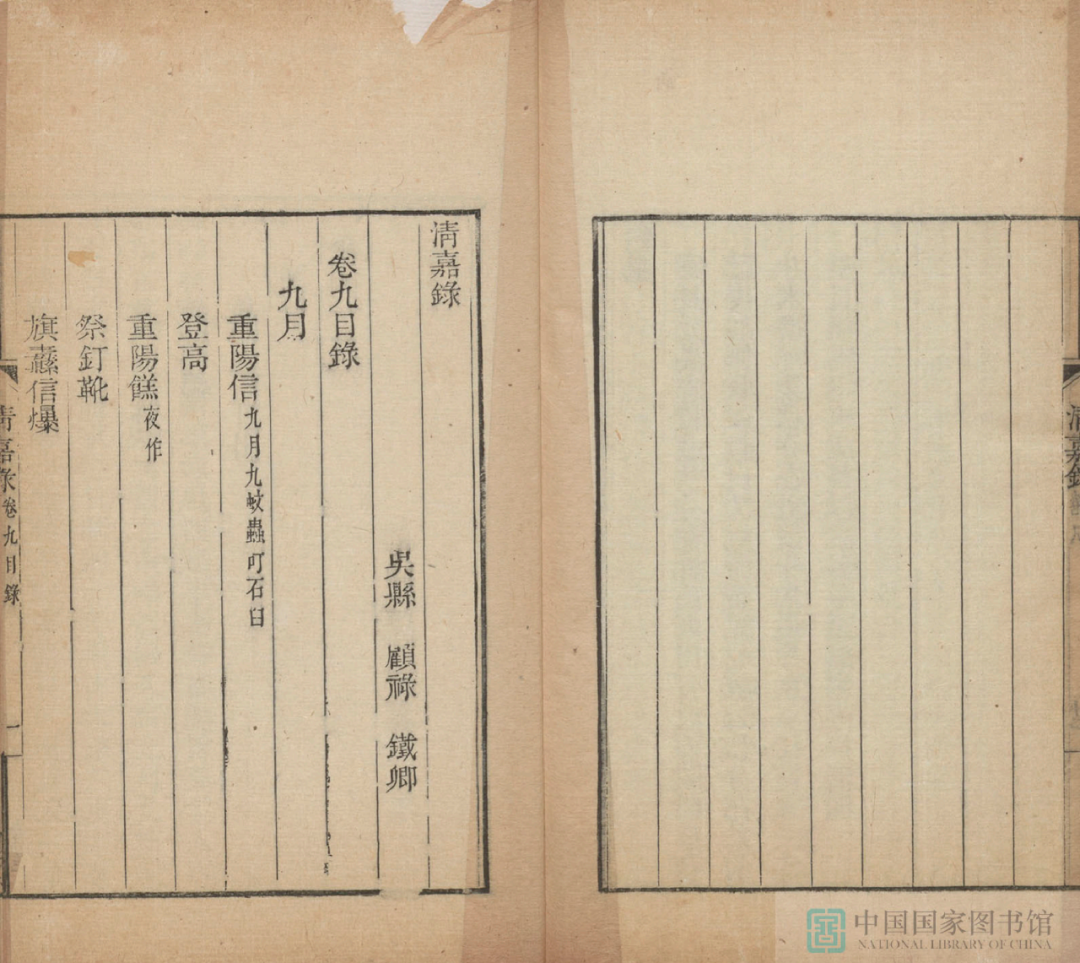 清嘉錄
吳� 顧祿 鐵卿
卷九目錄
九月
重陽信 九月九蚊蟲叮石臼
登高
重陽餻 夜作
祭釘靴
旗纛信爆
清嘉錄 卷九目錄 一
清嘉錄
中国国家图书馆
NATIONAL LIBRARY OF CHINA